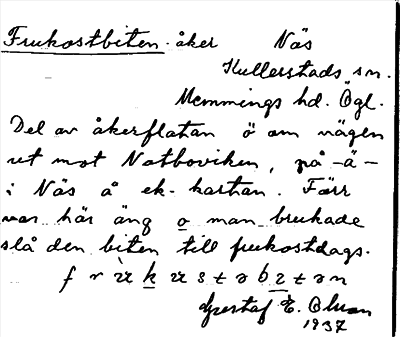 Frukostbiten. åker Näs
Kullerstads sn.
Memmings hd. Ögl.
Del av åkerflatan ö om vägen
ut mot Notboviken, på -ä-
i Näs å ek-kartan. Förr
var här äng o man brukade
slå den biten till frukostdags.
Gustaf E. Olson
1937